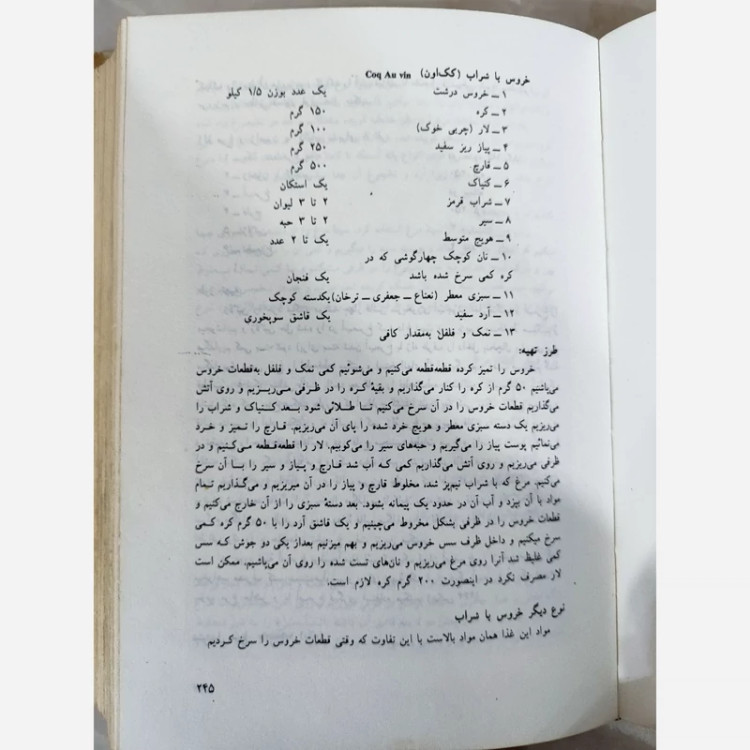 خروس با شراب (کک‌اون) Coq Au vin
۱ــ خروس درشت یک عدد بوزن ۱/۵ کیلو
۲ــ کره ۱۵۰ گرم
۳ــ لار (چربی خوک) ۱۰۰ گرم
۴ــ پیاز ریز سفید ۲۵۰ گرم
۵ــ قارچ ۵۰۰ گرم
۶ــ کنیاک یک استکان
۷ــ شراب قرمز ۲ تا ۳ لیوان
۸ــ سیر ۲ تا ۳ حبه
۹ــ هویج متوسط یک تا ۲ عدد
۱۰ــ نان کوچک چهارگوشی که در
کره کمی سرخ شده باشد یک فنجان
۱۱ــ سبزی معطر (نعناع ــ جعفری ــ ترخان) یکدسته کوچک
۱۲ــ آرد سفید یک قاشق سوپخوری
۱۳ــ نمک و فلفل به‌مقدار کافی
طرز تهیه:
خروس را تمیز کرده قطعه‌قطعه می‌کنیم و می‌شوئیم کمی نمک و فلفل به‌قطعات خروس
می‌باشیم ۵۰ گرم از کره را کنار می‌گذاریم و بقیهٔ کره را در ظرفی می‌ریزیم و روی آتش
می‌گذاریم قطعات خروس را در آن سرخ می‌کنیم تا طلائی شود بعد کنیاک و شراب را
می‌ریزیم یک دسته سبزی معطر و هویج خرد شده را پای آن می‌ریزیم. قارچ را تمیز و خرد
می‌نمائیم پوست پیاز را می‌گیریم و حبه‌های سیر را می‌کوبیم. لار را قطعه‌قطعه می‌کنیم و در
ظرفی می‌ریزیم و روی آتش می‌گذاریم کمی که آب شد قارچ و پیاز و سیر را با آن سرخ
می‌کنیم. مرغ که با شراب نیم‌پز شد، مخلوط قارچ و پیاز را در آن میریزیم و می‌گذاریم تمام
مواد با آن بپزد و آب آن در حدود یک پیمانه بشود. بعد دستهٔ سبزی را از آن خارج می‌کنیم و
قطعات خروس را در ظرفی بشکل مخروط می‌چینیم و یک قاشق آرد را با ۵۰ گرم کره کمی
سرخ میکنیم و داخل ظرف سس خروس می‌ریزیم و بهم میزنیم بعداز یکی دو جوش که سس
کمی غلیظ شد آنرا روی مرغ می‌ریزیم و نان‌های تست شده را روی آن می‌پاشیم. ممکن است
لار مصرف نکرد در اینصورت ۲۰۰ گرم کره لازم است.
نوع دیگر خروس با شراب
مواد این غذا همان مواد بالاست با این تفاوت که وقتی قطعات خروس را سرخ کردیم
۲۴۵